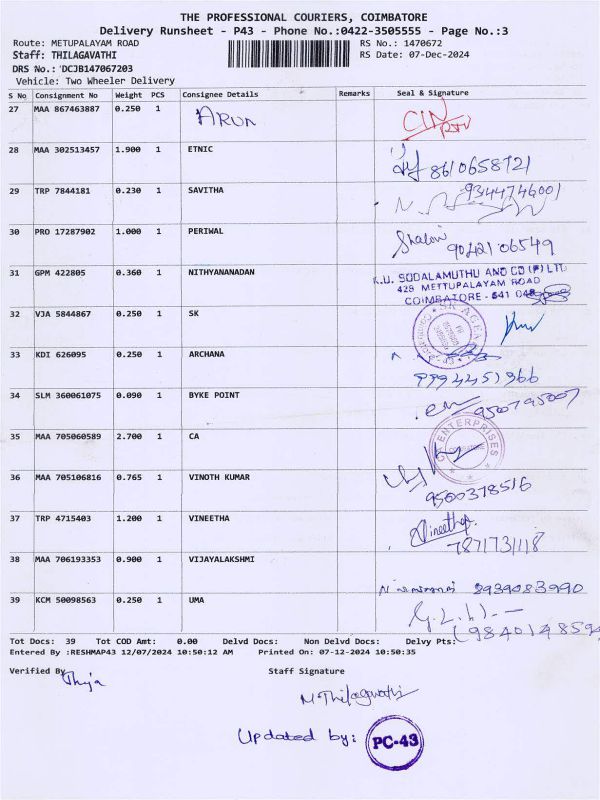 THE PROFESSIONAL COURIERS, COIMBATORE
Delivery Runsheet - P43 - Phone No.:0422-3505555 - Page No.:3
Route: METUPALAYAM ROAD RS No.: 1470672
Staff: THILAGAVATHI RS Date: 07-Dec-2024
DRS No.: DCJB147067203
Vehicle: Two Wheeler Delivery
S No Consignment No Weight PCS Consignee Details Remarks Seal & Signature
27 MAA 867463887 0.250 1 ARUN
28 MAA 302513457 1.900 1 ETNIC 8610658721
29 TRP 7844181 0.230 1 SAVITHA 9344746001
30 PRO 17287902 1.000 1 PERIWAL 9042106549
31 GPM 422805 0.360 1 NITHYANANADAN K.U. SODALAMUTHU AND CO (P) LTD
429 METTUPALAYAM ROAD
COIMBATORE - 641
32 VJA 5844867 0.250 1 SK SK
33 KDI 626095 0.250 1 ARCHANA 9994451966
34 SLM 360061075 0.090 1 BYKE POINT 9500795007
35 MAA 705060589 2.700 1 CA ENTERPRISES
36 MAA 705106816 0.765 1 VINOTH KUMAR 9500378516
37 TRP 4715403 1.200 1 VINEETHA Vineetha
7871731118
38 MAA 706193353 0.900 1 VIJAYALAKSHMI 8939083990
39 KCM 50098563 0.250 1 UMA
Tot Docs: 39 Tot COD Amt: 0.00 Delvd Docs: Non Delvd Docs: Delvy Pts:
Entered By :RESHMAP43 12/07/2024 10:50:12 AM Printed On: 07-12-2024 10:50:35
Verified By Staff Signature
M Thilagavathi
Updated by: PC-43